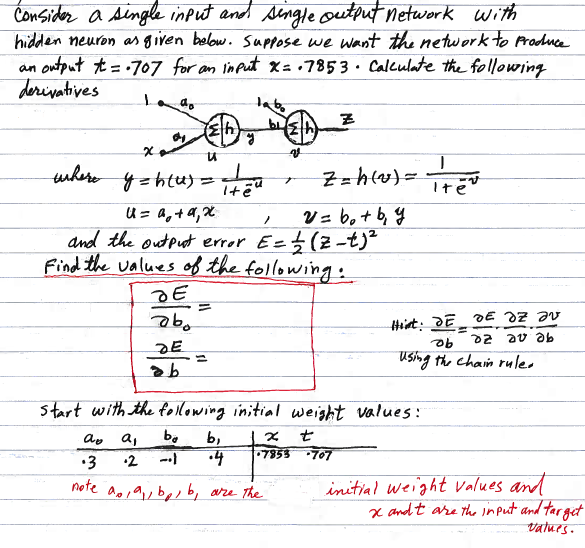 Consider a single input and single output network with
hidden neuron as given below. Suppose we want the network to produce
an output t = .707 for an input x = .7853. Calculate the following
derivatives
1 a₀ 1 b₀
Σ|h y b₁ Σ|h z
x a₁
u v
where y = h(u) = 1/(1+e⁻ᵘ) , Z = h(v) = 1/(1+e⁻ᵛ)
u = a₀ + a₁x , v = b₀ + b₁ y
and the output error E = ½ (Z - t)²
Find the values of the following:
∂E/∂b₀ =
∂E/∂b =
Hint: ∂E/∂b = ∂E/∂z · ∂z/∂v · ∂v/∂b
using the chain rule.
Start with the following initial weight values:
a₀ a₁ b₀ b₁ | x t
.3 .2 -.1 .4 | .7853 .707
note a₀, a₁, b₀, b₁ are the initial weight values and
x and t are the input and target
values.